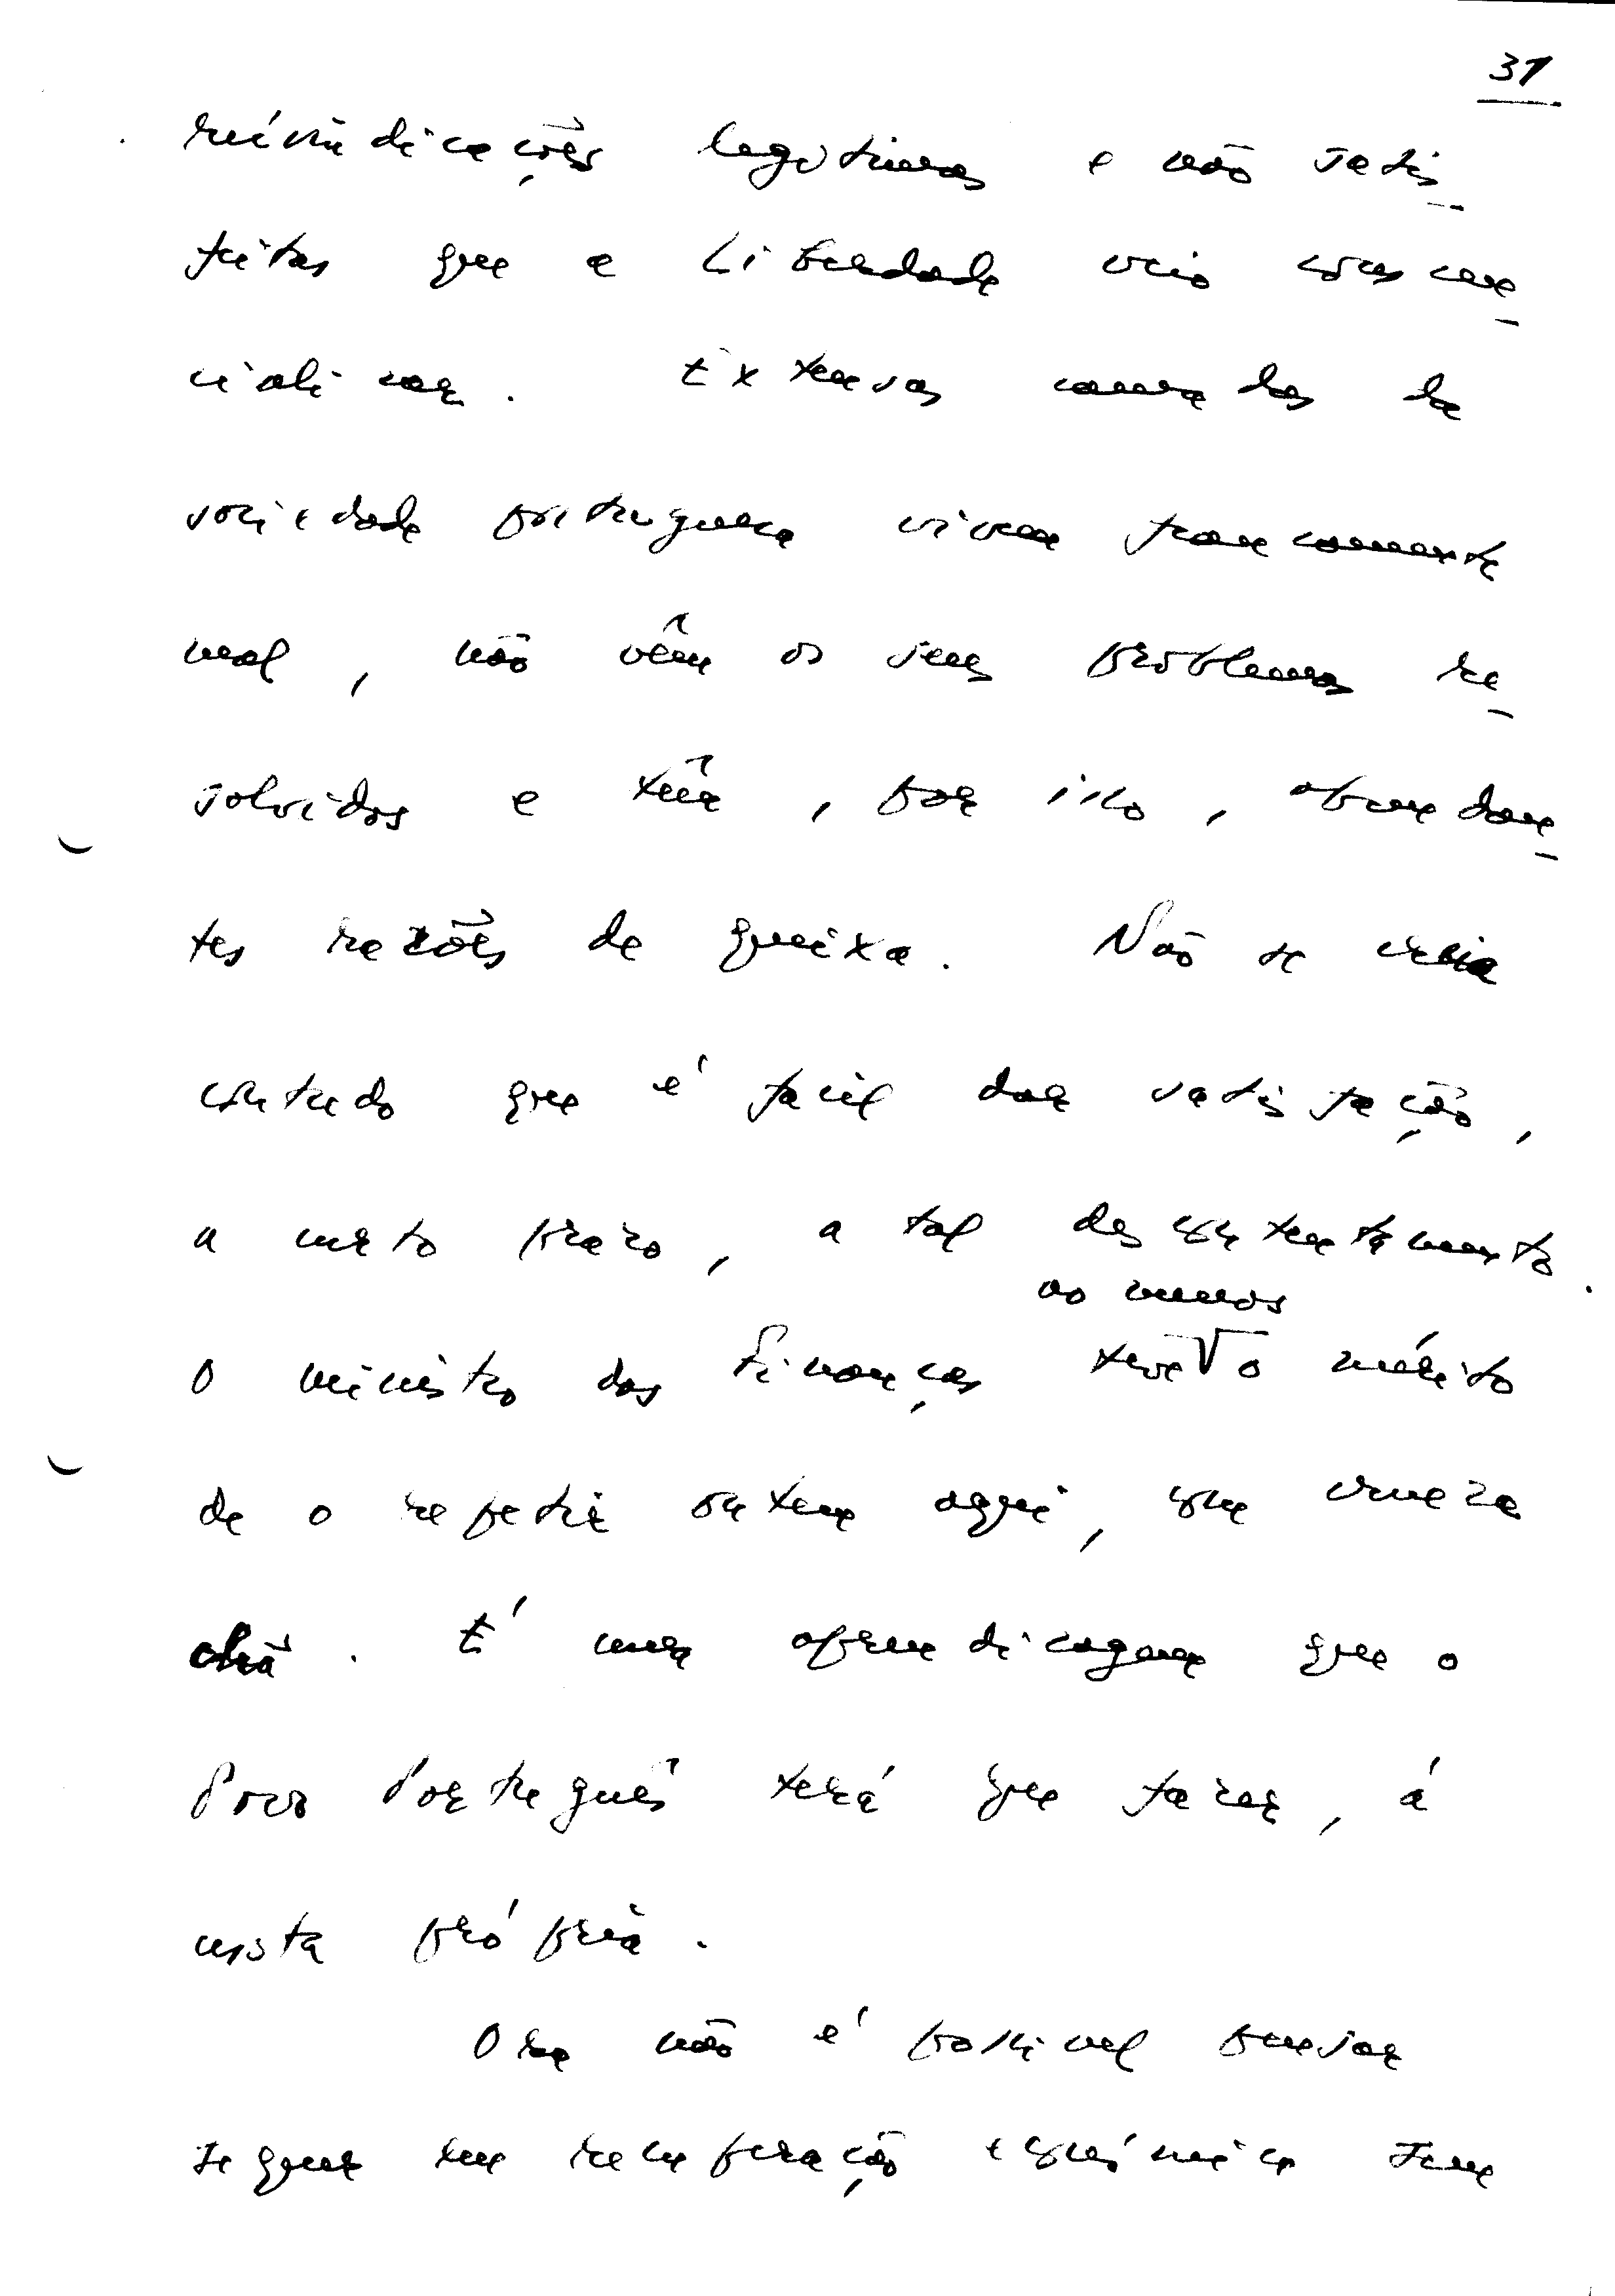 31
reivindicações legítimas e não satis-
feitas que a Liberdade veio consciencializar
cializar. Extensas camadas da
sociedade portuguesa vivem francamente
mal, não vêm os seus problemas re-
solvidos e têm, por isso, abundan-
tes razões de queixa. Não se creia
contudo que é facil dar satisfação,
a curto prazo, a tal descontentamento.
ao menos
O ministro das Finanças teve o mérito
de o repetir ontem aqui, com crueza
chã. É uma aprendizagem que o
Povo Português terá que fazer, á
custa própria.
Ora não é possivel pensar
sequer em recuperação económica sem